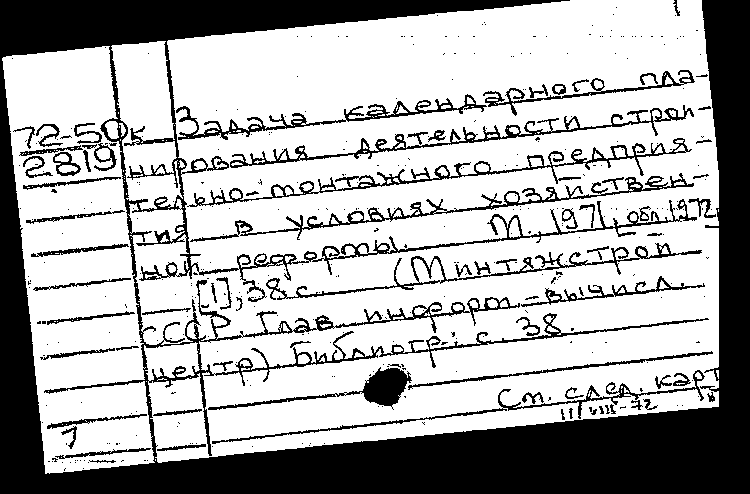 72-50к Задача календарного пла-
2819 нирования деятельности строи-
тельно-монтажного предприя-
тия в условиях хозяйствен-
ной реформы. М., 1971, обл. 1972,
[1], 38 с. (Минтяжстрой
СССР. Глав. информ.-вычисл.
центр) Библиогр.: с. 38.
См. след. карт
11/VIII-72
1